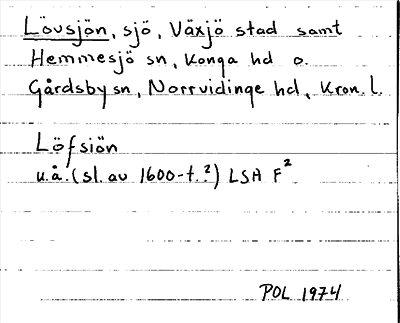 Lövsjön, sjö, Växjö stad samt
Hemmesjö sn, Konga hd o.
Gårdsby sn, Norrvidinge hd, Kron. l.
Löfsiön
u.å. (sl. av 1600-t.?) LSA F²
POL 1974